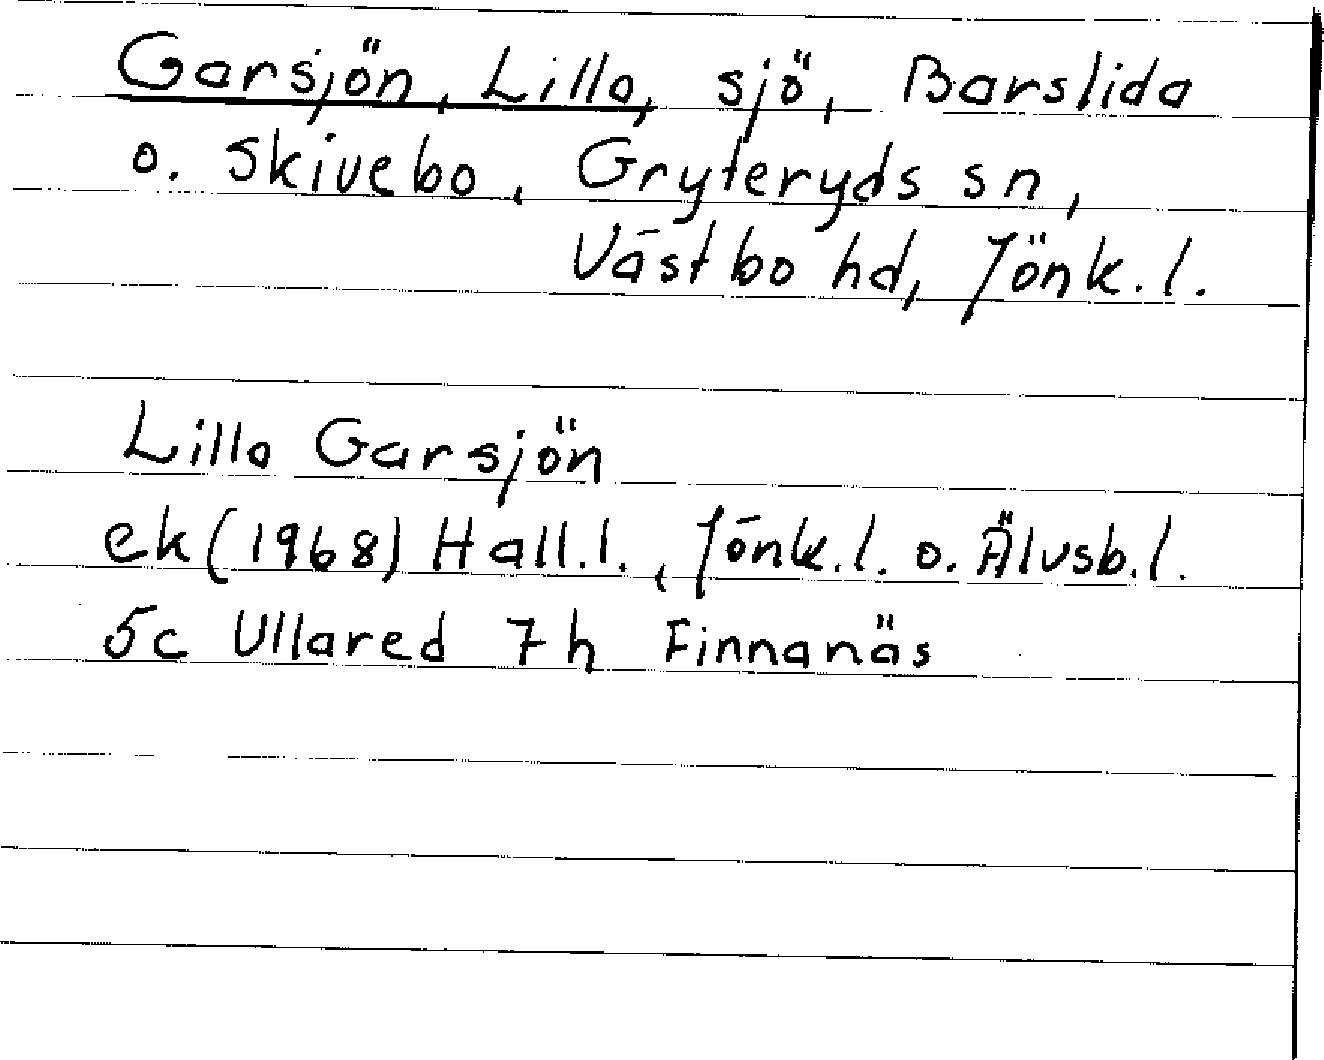 Garsjön, Lilla, sjö, Barslida
o. Skivebo, Gryteryds sn,
Västbo hd, Jönk.l.
Lilla Garsjön
ek (1968) Hall.l., Jönk.l. o. Älvsb.l.
5c Ullared 7h Finnanäs